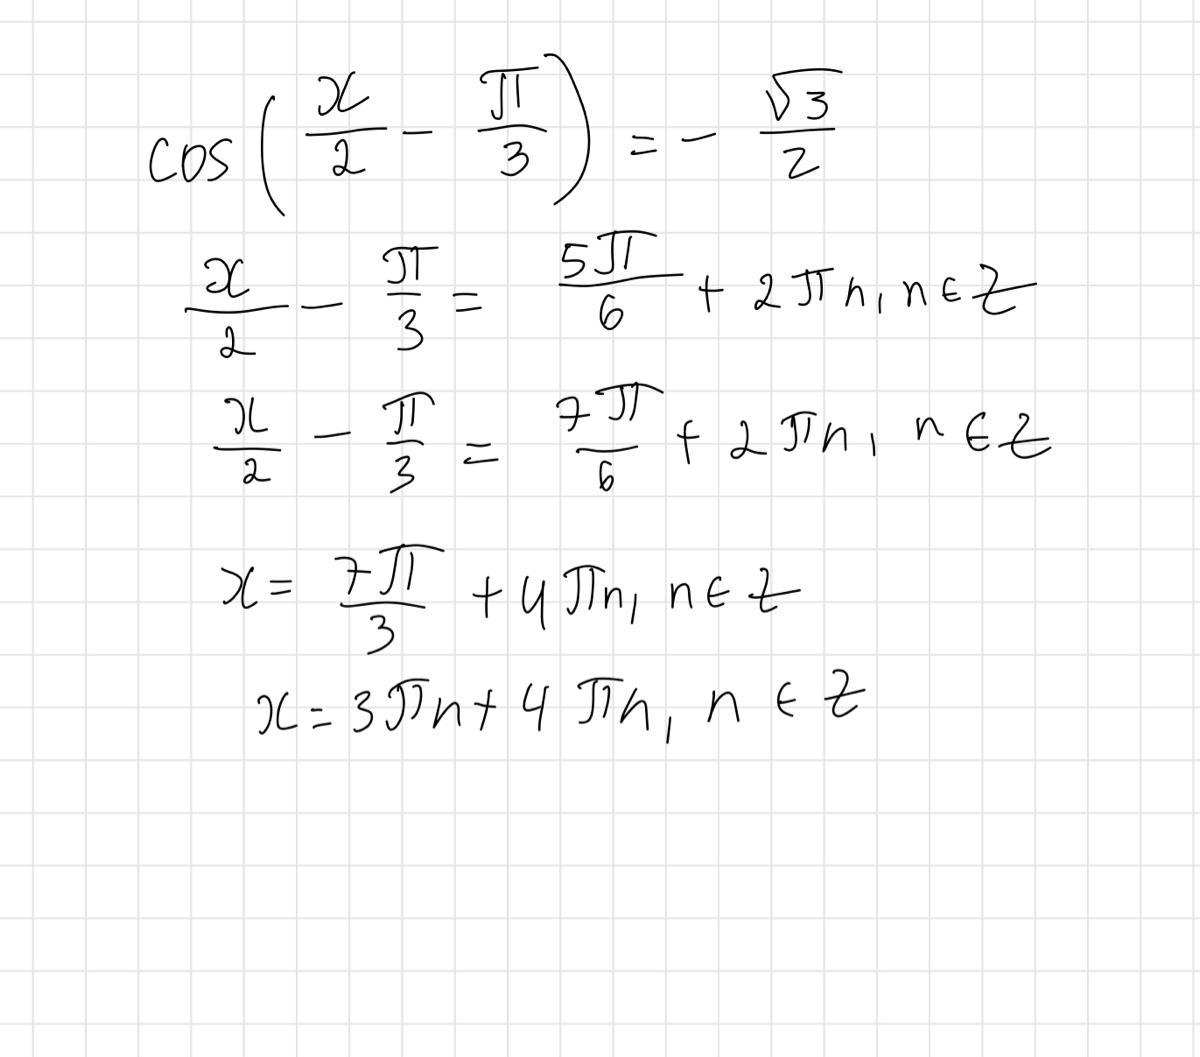 cos(x/2 - π/3) = - √3/2
x/2 - π/3 = 5π/6 + 2πn, n ∈ Z
x/2 - π/3 = 7π/6 + 2πn, n ∈ Z
x = 7π/3 + 4πn, n ∈ Z
x = 3πn + 4πn, n ∈ Z